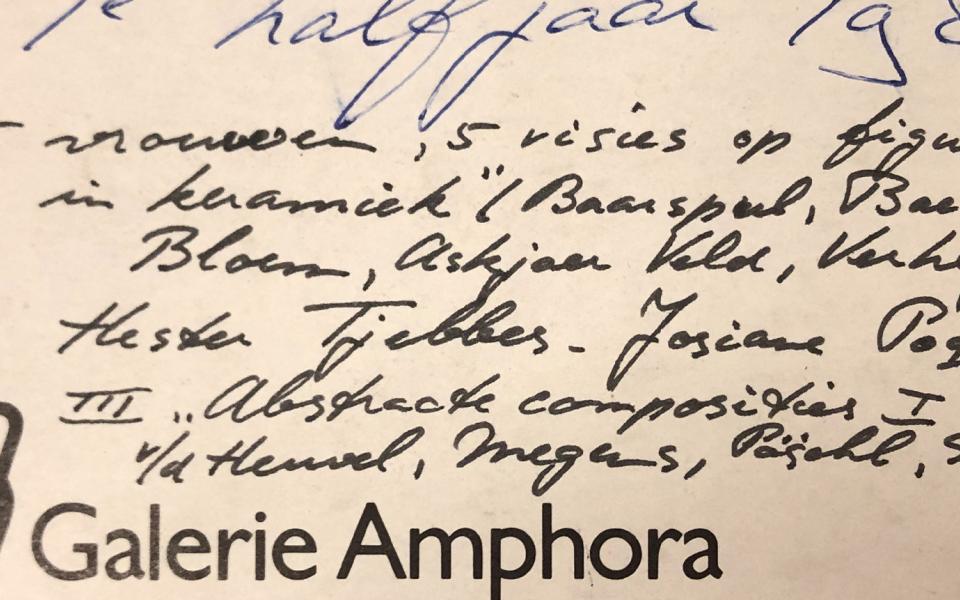 1e halfjaar 198
vrouwen, 5 visies op figu
in keramiek" (Baarspul, Bae
Bloem, Askjaer Veld, Verhe
Hester Tjebbes - Josiane Pog
III „Abstracte composities I
v/d Heuvel, Megens, Päschl, S
Galerie Amphora